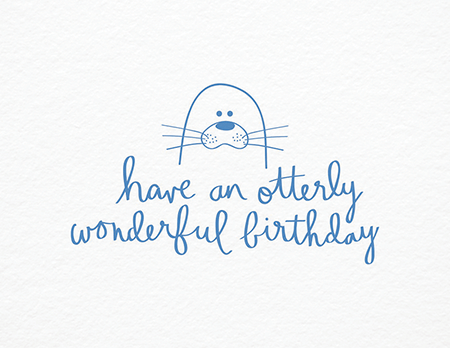 have an otterly
wonderful birthday